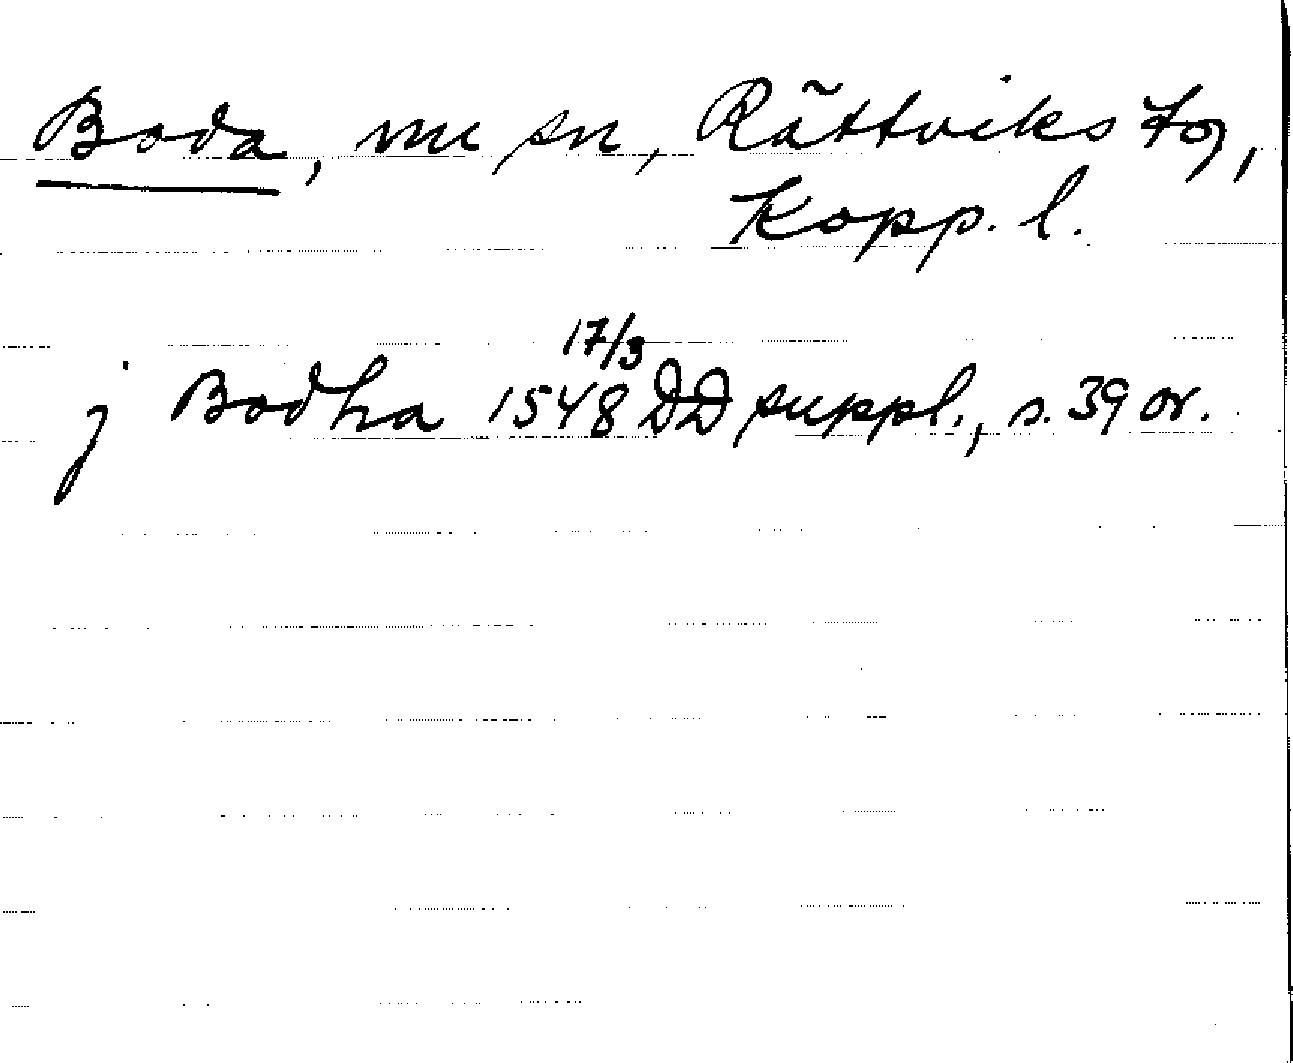 Boda, nu sn, Rättviks tg,
Kopp. l.
j Bodha 1548 17/3 DD suppl., s. 39 or.